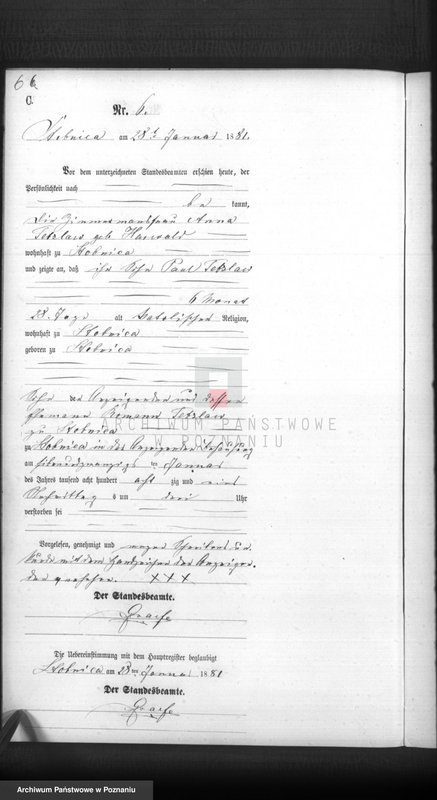 6 6.
C.
Nr. 6.
Stobnica am 28t Januar 1881.
Vor dem unterzeichneten Standesbeamten erschien heute, der
Persönlichkeit nach
be kannt,
die Zimmermannsfrau Anna
Tetzlaw geb
wohnhaft zu Stobnica
und zeigte an, daß ihr Sohn Paul Tetzlaw
6 Monat
28. Tage alt katolischer Religion,
wohnhaft zu Stobnica
geboren zu Stobnica
Sohn der Anzeigenden und dessen
Ehemann Tetzlaw
zu Stobnica
ARCHIWUM PAŃSTWOWE
W POZNANIU
zu Stobnica in der Anzeigender Behausung
am siebenundzwanzigs ten Januar
des Jahres tausend acht hundert acht zig und eins
Nachmittag s um drei Uhr
verstorben sei
Vorgelesen, genehmigt und wegen Schreibens un
kunde mit dem Handzeichen der Anzeigen
den versehen. XXX
Der Standesbeamte.
Graefe
Die Uebereinstimmung mit dem Hauptregister beglaubigt
Stobnica am 28ten Januar 1881
Der Standesbeamte.
Graefe
Archiwum Państwowe w Poznaniu